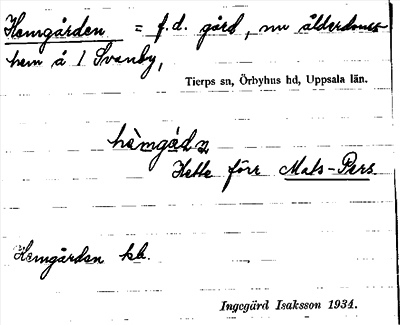 Hemgården = f.d. gård, nu ålderdoms-
hem å 1 Svanby,
Tierps sn, Örbyhus hd, Uppsala län.
Hette förr Mats-Pers.
Hemgården kb.
Ingegärd Isaksson 1934.